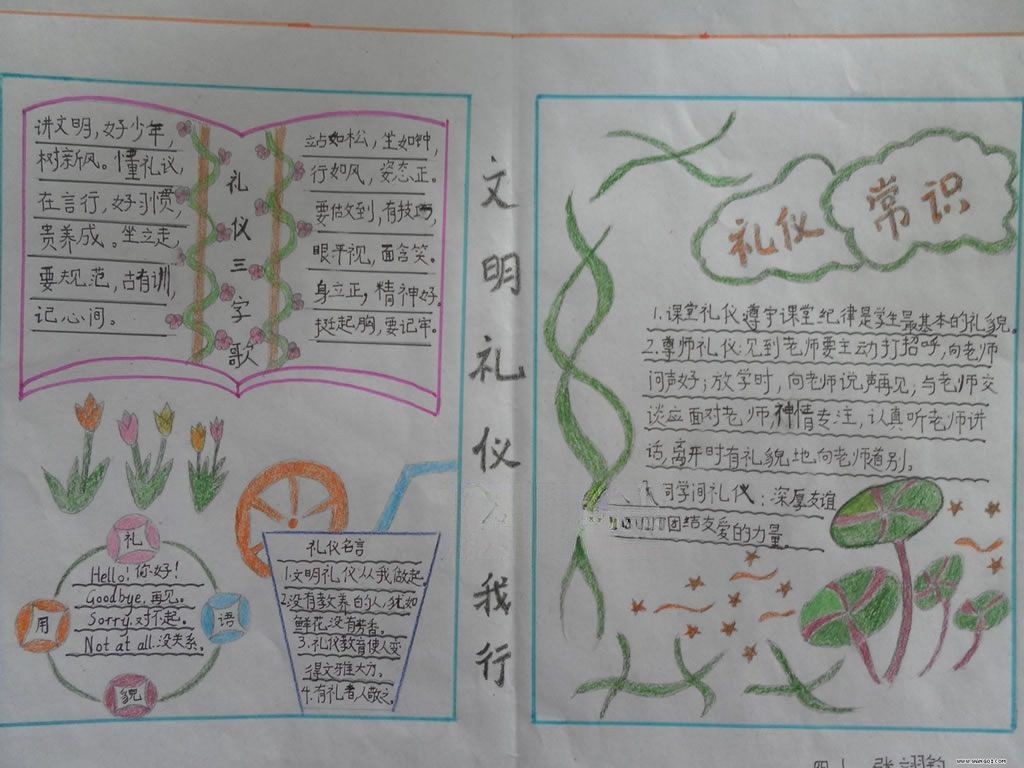 讲文明，好少年，
树新风。懂礼议，
在言行，好习惯，
贵养成。坐立走，
要规范，古有训，
记心间。
礼仪三字歌
站如松，坐如钟，
行如风，姿态正。
要做到，有技巧，
眼平视，面含笑。
身立正，精神好。
挺起胸，要记牢。
礼
用
语
貌
Hello! 你好！
Goodbye, 再见。
Sorry, 对不起。
Not at all. 没关系。
礼仪名言
1.文明礼仪从我做起。
2.没有教养的人，犹如
鲜花没有芳香。
3.礼仪教育使人变
得文雅大方。
4.有礼者人敬之。
文明礼仪 我行
礼仪 常识
1.课堂礼仪：遵守课堂纪律是学生最基本的礼貌。
2.尊师礼仪：见到老师要主动打招呼，向老师
问声好；放学时，向老师说声再见；与老师交
谈应面对老师，神情专注，认真听老师讲
话，离开时有礼貌地向老师道别。
同学间礼仪：深厚友谊
团结友爱的力量。